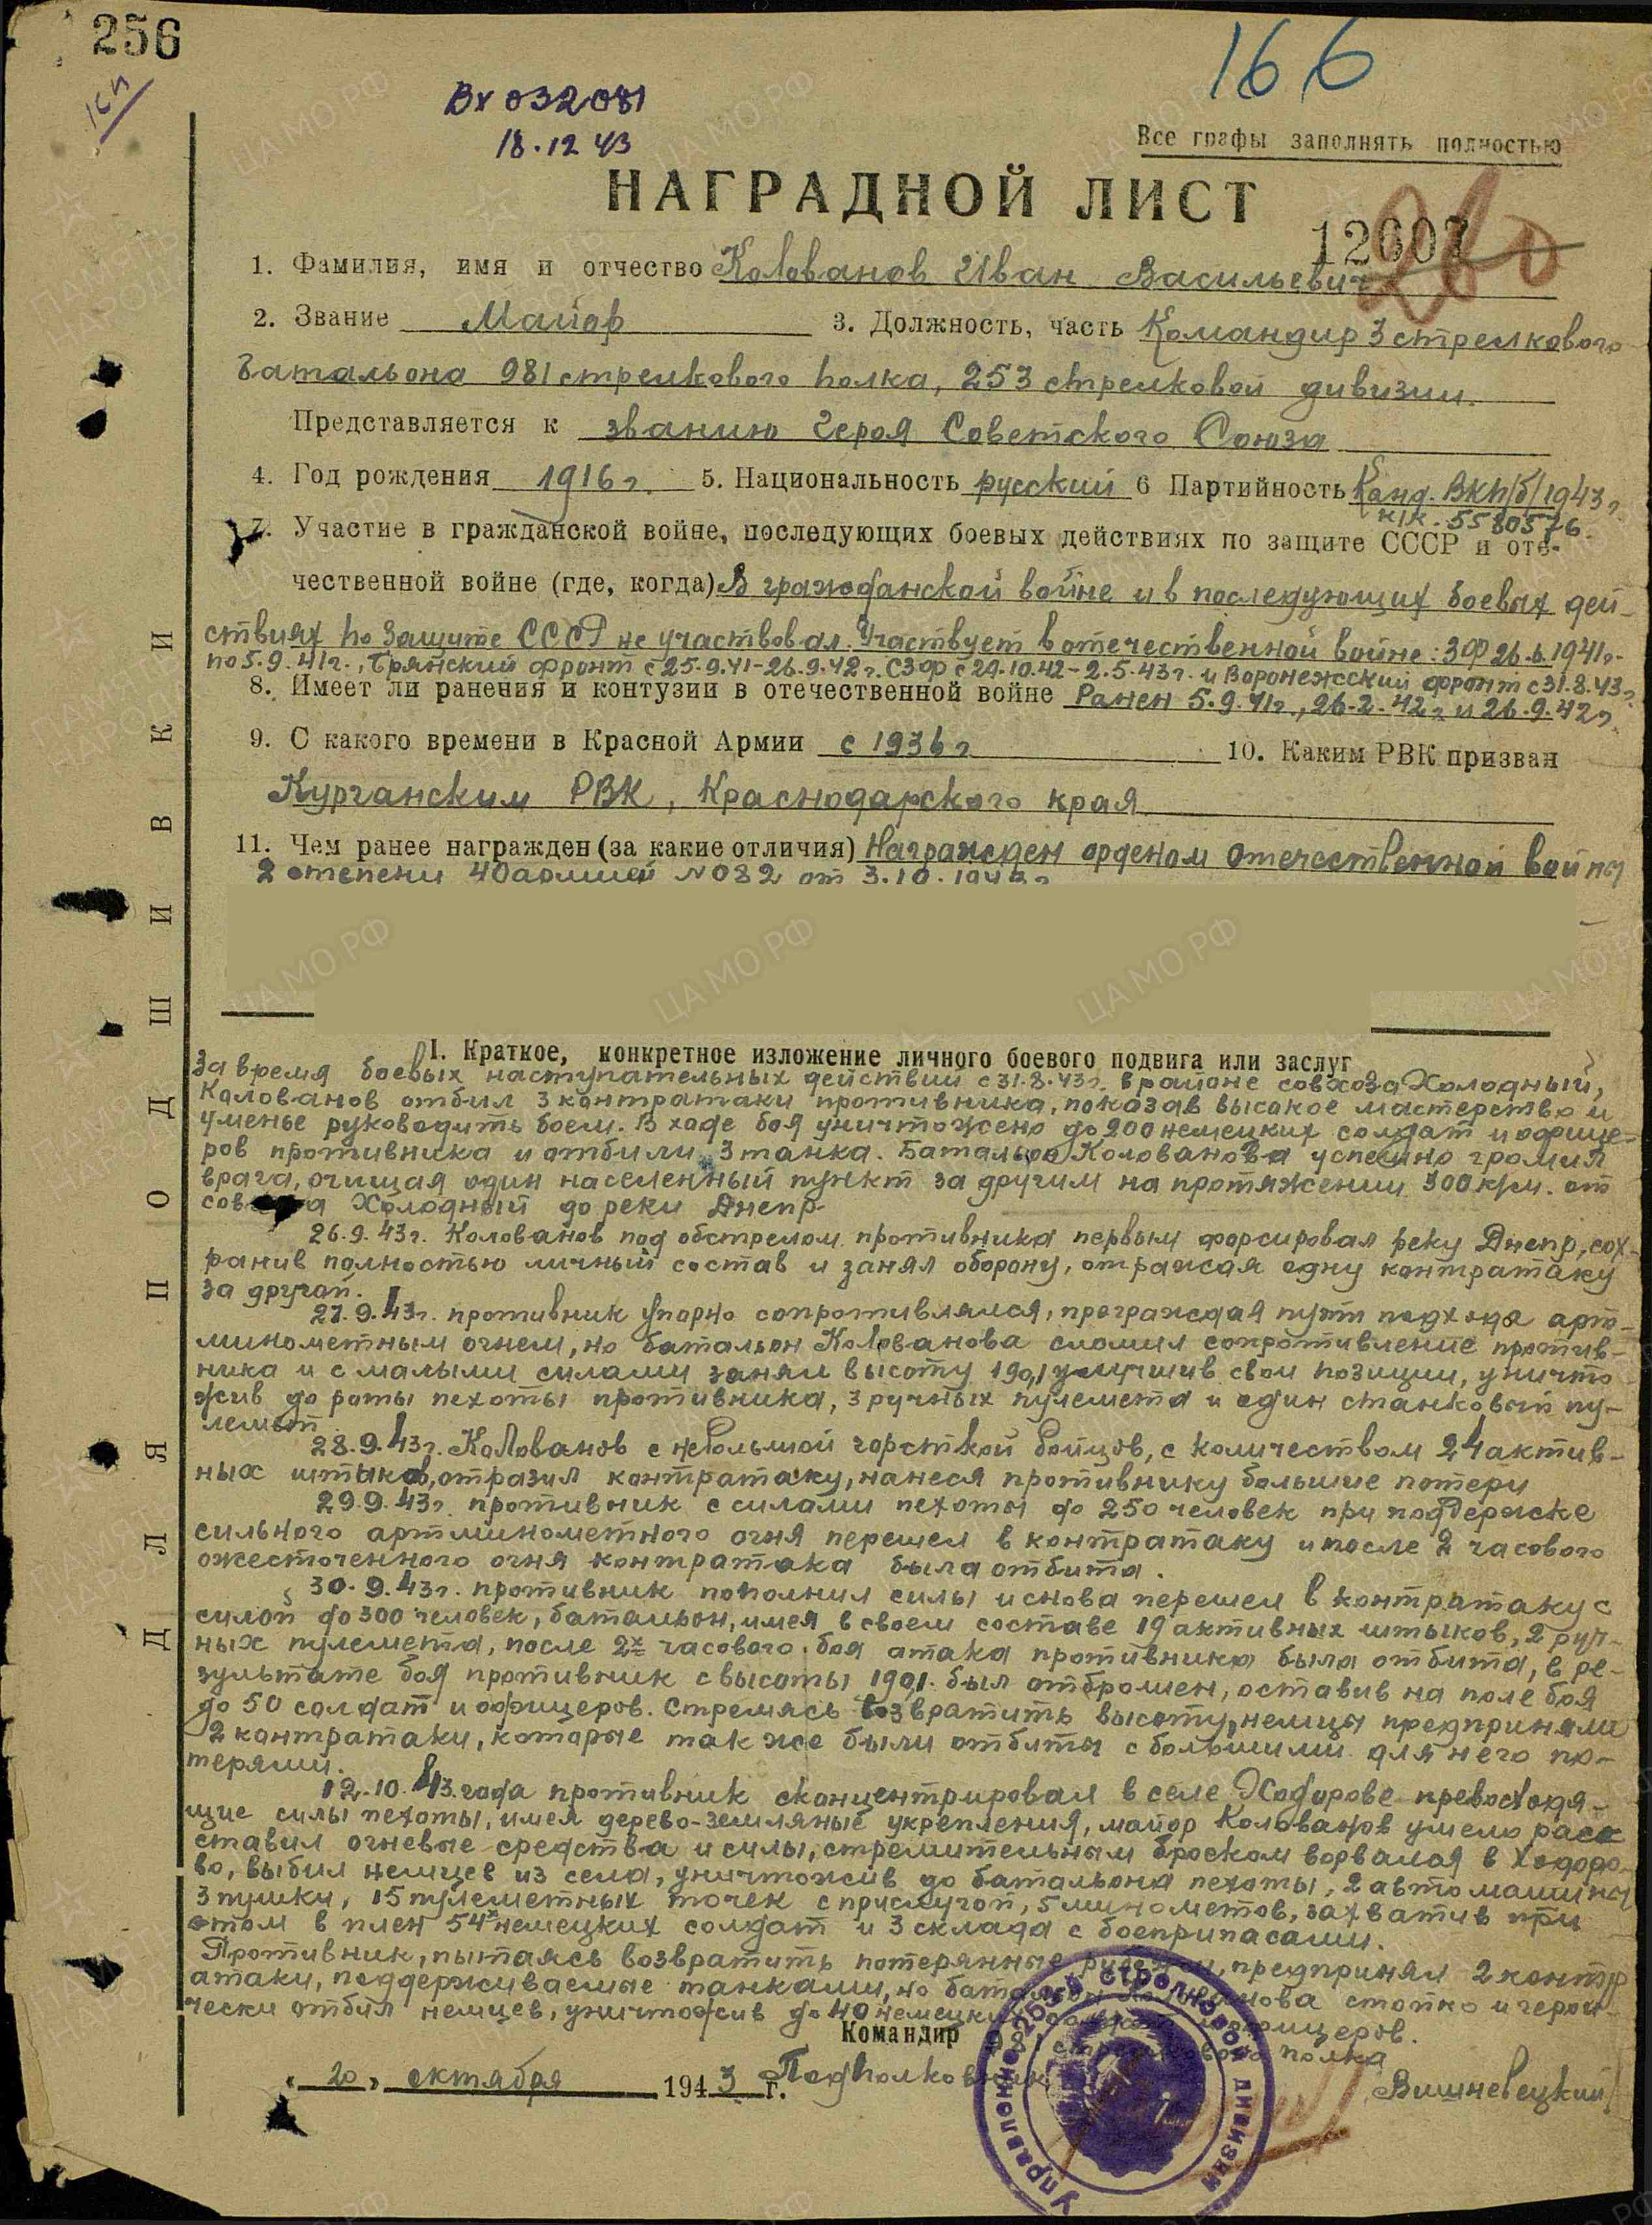 256
166
Вх 032081
18.12 43
Все графы заполнять полностью
НАГРАДНОЙ ЛИСТ
12607
1. Фамилия, имя и отчество Колованов Иван Васильевич
2. Звание Майор 3. Должность, часть Командир 3 стрелкового
батальона 981 стрелкового полка, 253 стрелковой дивизии.
Представляется к званию Героя Советского Союза
4. Год рождения 1916 г. 5. Национальность русский 6 Партийность Канд. ВКП/б/ 1943 г.
к/к. 5580576.
7. Участие в гражданской войне, последующих боевых действиях по защите СССР и оте-
чественной войне (где, когда) В гражданской войне и в последующих боевых дей-
ствиях по защите СССР не участвовал. Участвует в отечественной войне: ЗФ 26.6.1941г.-
по 5.9.41г., Брянский фронт с 25.9.41-26.9.42г. СЗФ с 29.10.42-2.5.43г. и Воронежский фронт с 31.8.43г.
8. Имеет ли ранения и контузии в отечественной войне Ранен 5.9.41г., 26.2.42г и 26.9.42г.
9. С какого времени в Красной Армии с 1936 г 10. Каким РВК призван
Курганским РВК, Краснодарского края
11. Чем ранее награжден (за какие отличия) Награжден орденом Отечественной войны
2 степени 40 армией № 082 от 3.10.1943г
I. Краткое, конкретное изложение личного боевого подвига или заслуг
За время боевых наступательных действий с 31.8.43г. в районе совхоза Холодный,
Колованов отбил 3 контратаки противника, показав высокое мастерство и
уменье руководить боем. В ходе боя уничтожено до 200 немецких солдат и офице-
ров противника и отбили 3 танка. Батальон Колованова успешно громил
врага, очищая один населенный пункт за другим на протяжении 300 км. от
Холодный до реки Днепр.
26.9.43г. Колованов под обстрелом противника первым форсировал реку Днепр, сох-
ранив полностью личный состав и занял оборону, отражая одну контратаку
за другой.
27.9.43г. противник упорно сопротивлялся, преграждая пути подхода арт-
минометным огнем, но батальон Колованова сломил сопротивление против-
ника и с малыми силами занял высоту 190,1 улучшив свои позиции, уничто-
жив до роты пехоты противника, 3 ручных пулемета и один станковый пу-
лемет.
28.9.43г. Колованов с небольшой горсткой бойцов, с количеством 24 актив-
ных штыков, отразил контратаку, нанеся противнику большие потери
29.9.43г. противник с силами пехоты до 250 человек при поддержке
сильного артминометного огня перешел в контратаку и после 2 часового
ожесточенного огня контратака была отбита.
30.9.43г. противник пополнил силы и снова перешел в контратаку с
силой до 300 человек, батальон, имея в своем составе 19 активных штыков, 2 руч-
ных пулемета, после 2х часового боя атака противника была отбита, в ре-
зультате боя противник с высоты 190,1. был отброшен, оставив на поле боя
до 50 солдат и офицеров. Стремясь возвратить высоту, немцы предприняли
2 контратаки, которые так же были отбиты с большими для него по-
терями.
12.10.43 года противник сконцентрировал в селе Ходорове превосходя-
щие силы пехоты, имея дерево-земляные укрепления, майор Колованов умело расс
ставил огневые средства и силы, стремительным броском ворвался в Ходоро-
во, выбил немцев из села, уничтожив до батальона пехоты, 2 автомашины
3 пушки, 15 пулеметных точек с прислугой, 5 минометов, захватив при
этом в плен 54х немецких солдат и 3 склада с боеприпасами.
Противник, пытаясь возвратить потерянные рубежи, предпринял 2 контр
атаки, поддерживаемые танками, но батальон Колованова стойко и герои-
чески отбил немцев, уничтожив до 40 немецких солдат и офицеров.
Командир 981 стрелкового полка
Подполковник Вишневецкий
„20„ октября 1943 г.
Управление 253й стрелковой дивизии
ДЛЯ ПОДШИВКИ